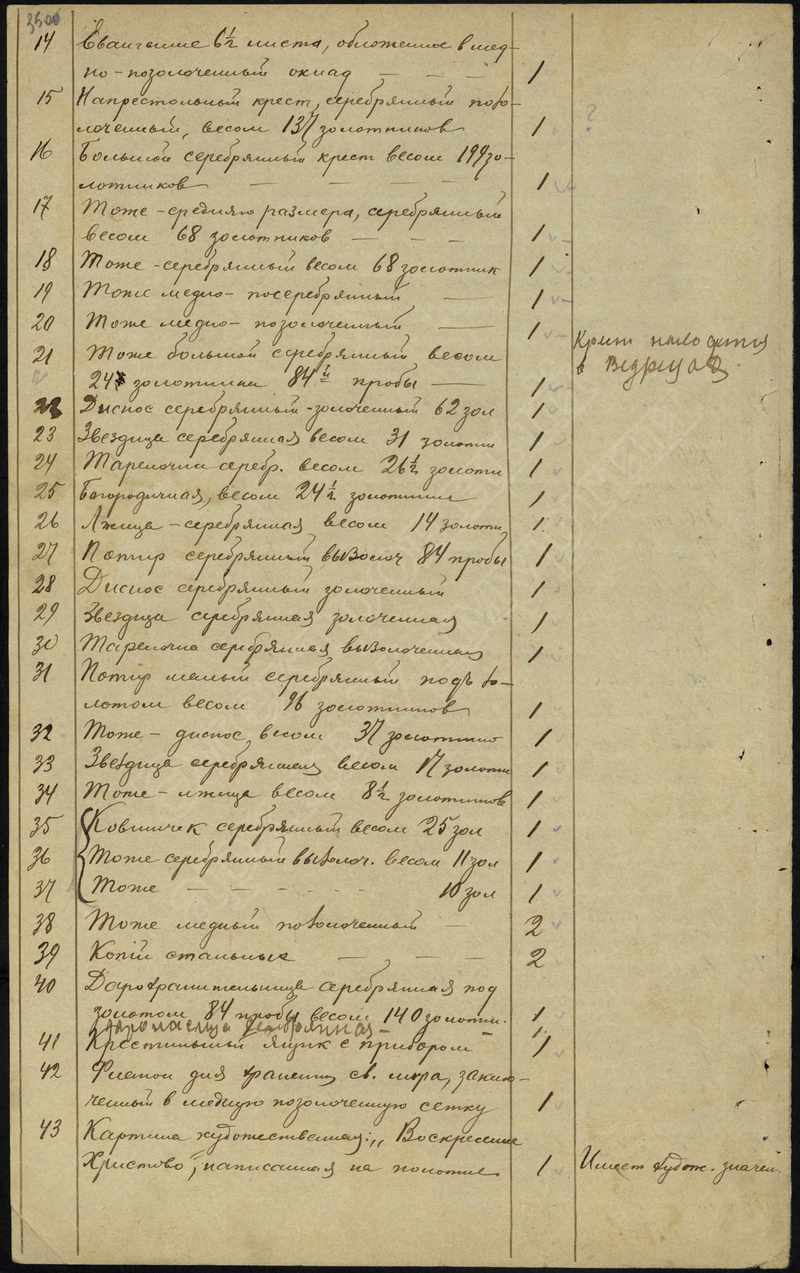 3500
14 Евангелие 6½ листа, обложенное в мед-
но-позолоченный оклад — - - - 1
15 Напрестольный крест, серебрянный позо-
лоченный, весом 137 золотников 1 ?
16 Большой серебрянный крест весом 199 зо-
лотников — — - - - - 1
17 Тоже - среднего размера, серебрянный
весом 68 золотников — - - - 1
18 Тоже - серебрянный весом 68 золотник 1
19 Тоже медно- посеребрянный — 1
20 Тоже медно- позолоченный — 1
Крест находится
21 Тоже большой серебрянный весом
в
24 золотника 84й пробы — 1
22 Дискос серебрянный-золоченный 62 зол 1
23 Звездица серебрянная весом 31 золотн 1
24 Тарелочки серебр. весом 26½ золотн 1
25 Богородичная, весом 24½ золотник 1
26 Лжица - серебрянная весом 14 золотн 1
27 Потир серебрянный вызолоч 84 пробы 1
28 Дискос серебрянный золоченный 1
29 Звездица серебрянная золоченная 1
30 Тарелочка серебрянная вызолоченная 1
31 Потир малый серебрянный подъ зо-
лотом весом 96 золотников 1
32 Тоже - дискос, весом 37 золотник 1
33 Звездица серебрянная весом 17 золотн 1
34 Тоже - лжица весом 8½ золотников 1
35 Ковшичек серебрянный весом 25 зол 1
36 Тоже серебрянный вызолоч. весом 11 зол 1
37 Тоже — — - - - - 10 зол 1
38 Тоже медный позолоченный — 2
39 Копий стальных — — - 2
40 Дарохранительница серебрянная под
золотом 84 пробы весом 140 золотн. 1
серебрянная - 1
41 Крестильный ящик с прибором 1
42 Флакон для хранения св. мира, заклю-
ченный в медную позолоченную сетку 1
43 Картина художественная: „Воскресение
Христово", написанная на полотне 1 Имеет худож. значен.